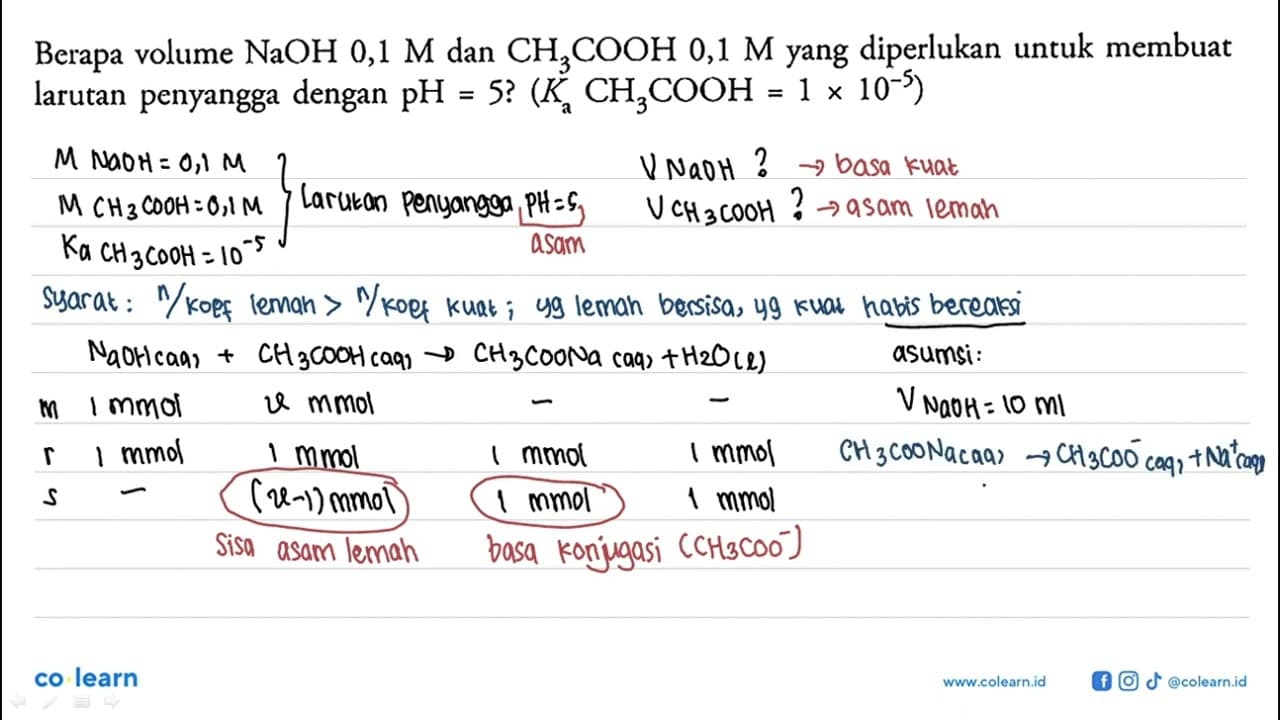 Berapa volume NaOH 0,1 M dan CH₃COOH 0,1 M yang diperlukan untuk membuat
larutan penyangga dengan pH = 5? (Kₐ CH₃COOH = 1 × 10⁻⁵)
M NaOH = 0,1 M
M CH3COOH = 0,1 M
Ka CH3COOH = 10⁻⁵
Larutan penyangga, pH = 5,
asam
V NaOH ? → basa kuat
V CH3COOH ? → asam lemah
Syarat : n/koef lemah > n/koef kuat ; yg lemah bersisa, yg kuat habis bereaksi
NaOH(aq) + CH3COOH(aq) → CH3COONa(aq) + H2O(l)
asumsi:
m 1 mmol x mmol – –
V NaOH = 10 ml
r 1 mmol 1 mmol 1 mmol 1 mmol
CH3COONa(aq) → CH3COO⁻(aq) + Na⁺(aq)
s – (x-1) mmol 1 mmol 1 mmol
Sisa asam lemah basa konjugasi (CH3COO⁻)
co learn
www.colearn.id
@colearn.id